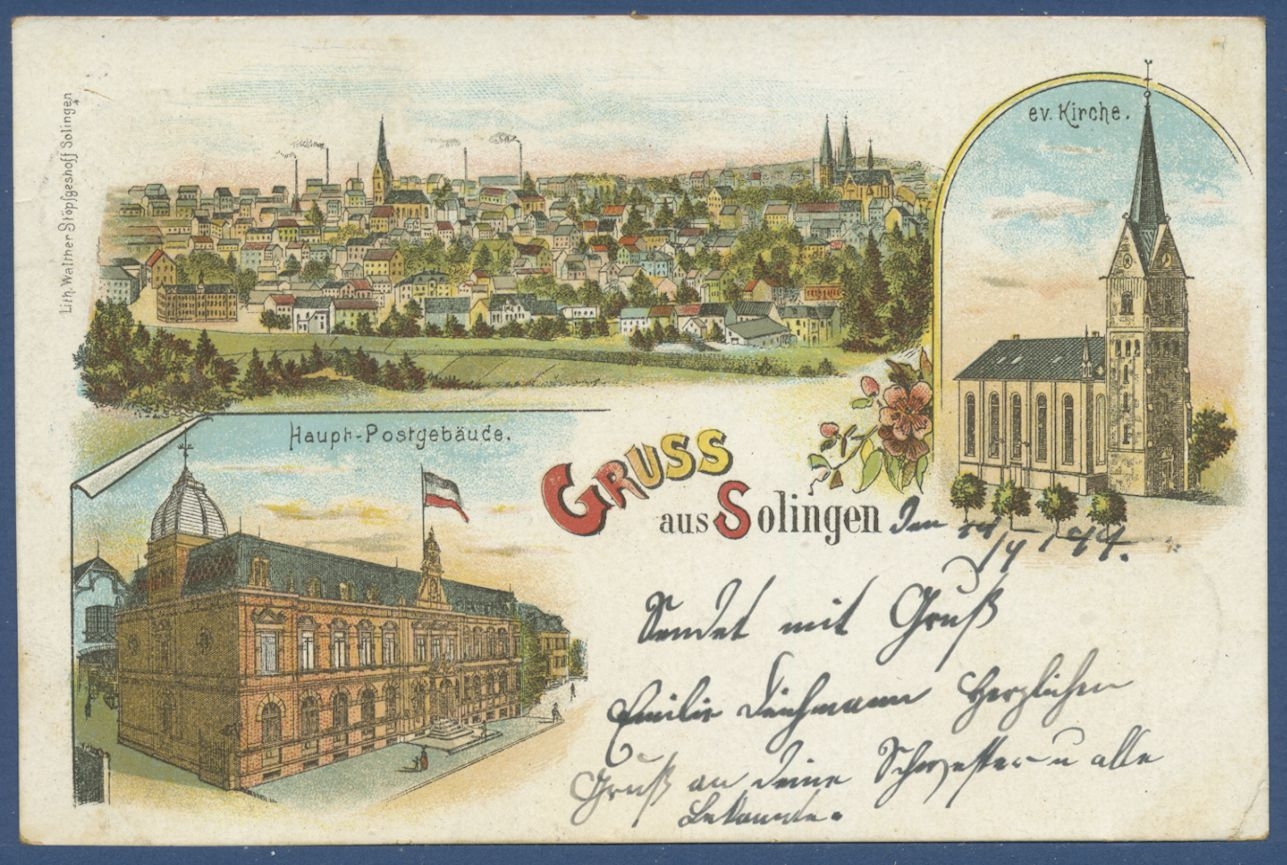 Lith. Walther Stöpsgeshoff Solingen
ev. Kirche.
Haupt-Postgebäude.
GRUSS
aus Solingen
Den
Sendet mit Gruß
Emilie Deichmann Herzlichen
Gruß an deine Schwester u alle
Bekannte.